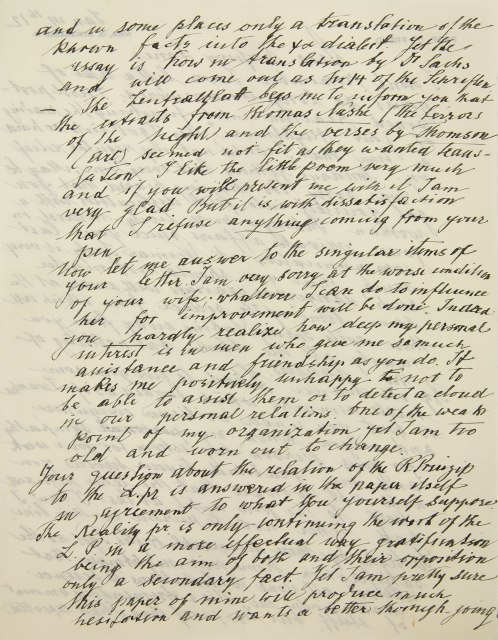 and in some places only a translation of the
known facts into the ψα dialect. Yet the
essay is now in translation by Dr Sachs
and will come out as h of the Schriften
— The Zentralblat begs me to inform you that
the extracts from Thomas Nashe (the terrors
of the Night) and the verses by Thomson
(are) seemed not fit as they wanted trans-
lation. I like the little poem very much
and if you will present me with it I am
very glad But it is with dissatisfaction
that I refuse anything coming from your
pen.
Now let me answer to the singular items of
your letter. I am very sorry at the worse condition
of your wife; whatever I can do to influence
her for improvement will be done. Indeed
you hardly realize how deep my personal
interest is in men who give me so much
assistance and friendship as you do. It
makes me positively unhappy to not to
be able to assist them or to detect a cloud
in our personal relations. One of the weak
point of my organization yet I am too
old and worn out to change.
Your question about the relation of the R. Prinzip
to the L. pr is answered in the paper itself
in agreement to what you yourself suppose
The Reality pr is only continuing the work of the
L. P. in a more effectual way gratification
being the aim of both and their opposition
only a secondary fact. Yet I am pretty sure
this paper of mine will produce much
hesitation and wants a better thorough going